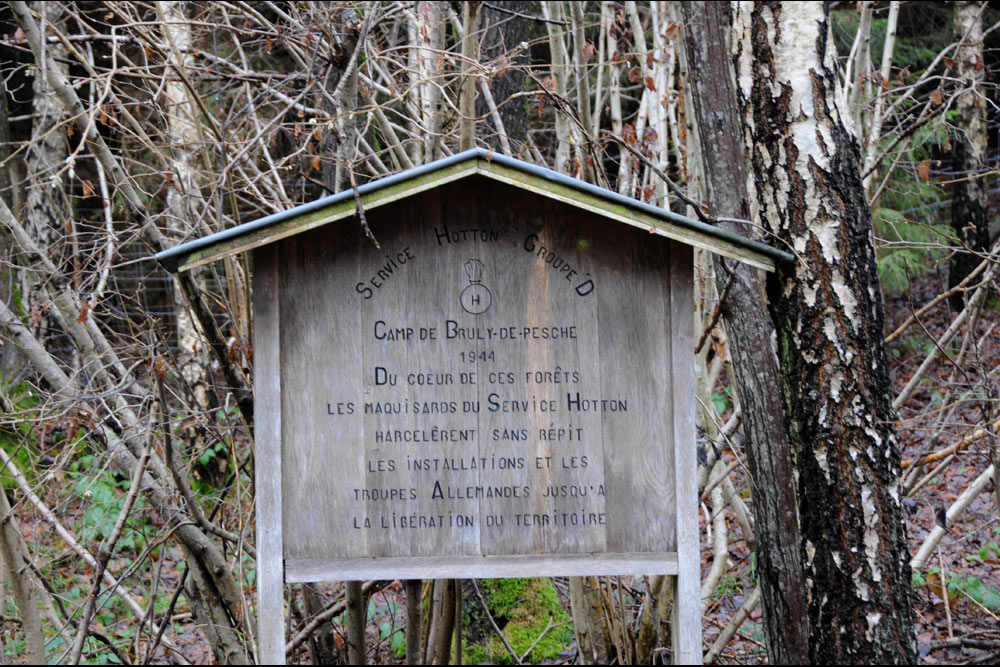 Service Hotton Groupe'D
H
Camp de Bruly-de-Pesche
1944
Du coeur de ces forêts
les maquisards du Service Hotton
harcelêrent sans répit
les installations et les
troupes Allemandes jusqu'a
la libération du territoire